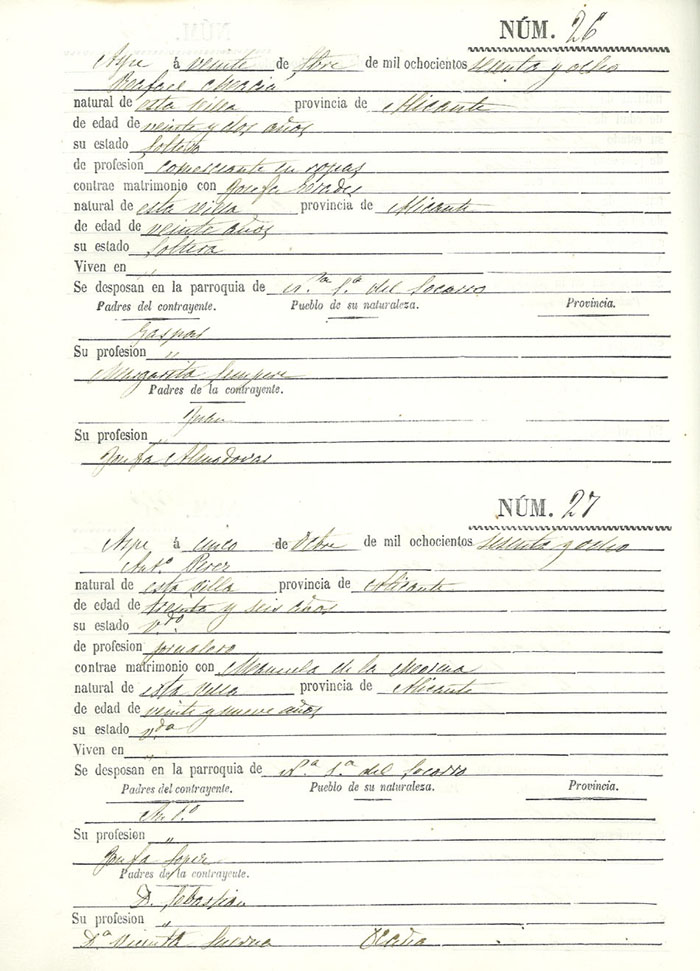 NÚM. 26
Aspe á veinte de 7bre de mil ochocientos sesenta y ocho
natural de esta villa provincia de Alicante
de edad de veinte y dos años
su estado Soltero
de profesion comerciante en ropas
contrae matrimonio con Josefa
natural de esta villa provincia de Alicante
de edad de veinte años
su estado Soltera
Viven en "
Se desposan en la parroquia de N.ra S.ra del Socorro
Padres del contrayente. Pueblo de su naturaleza. Provincia.
Gaspar
Su profesion "
Margarita Sempere
Padres de la contrayente.
Juan
Su profesion "
Josefa Almodovar
NÚM. 27
Aspe á cinco de Octbre de mil ochocientos sesenta y ocho
Ant.o Perez
natural de esta villa provincia de Alicante
de edad de treinta y seis años
su estado v.do
de profesion jornalero
contrae matrimonio con Manuela de la
natural de esta villa provincia de Alicante
de edad de veinte y nueve años
su estado v.da
Viven en "
Se desposan en la parroquia de N.a S.a del Socorro
Padres del contrayente. Pueblo de su naturaleza. Provincia.
Ant.o
Su profesion "
Josefa Lopez
Padres de la contrayente.
D. Sebastian
Su profesion "
D.a Vicenta